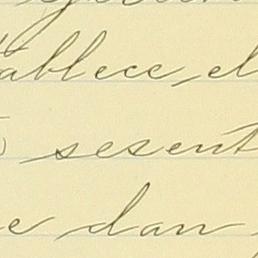 tablece, el
sesent
e dan